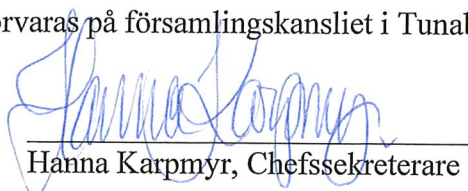 rvaras på församlingskansliet i Tunab
Hanna Karpmyr
Hanna Karpmyr, Chefssekreterare